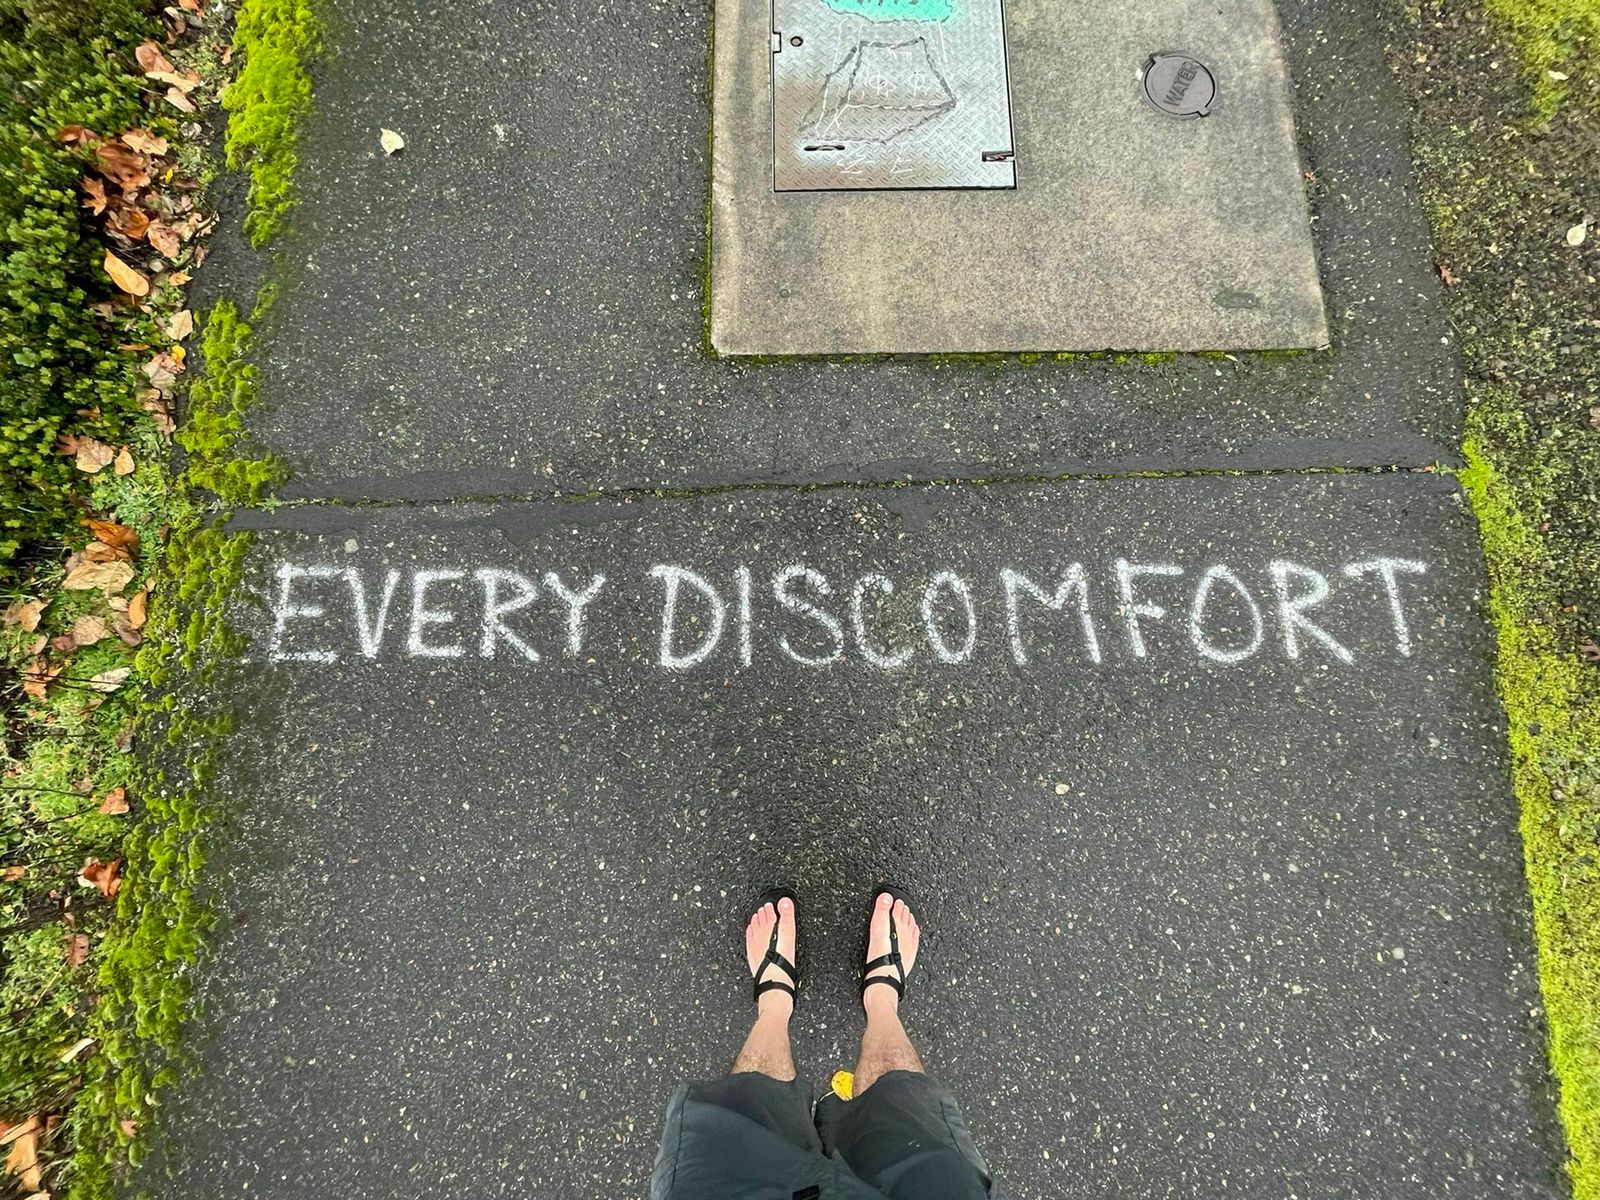 WATER
EVERY DISCOMFORT